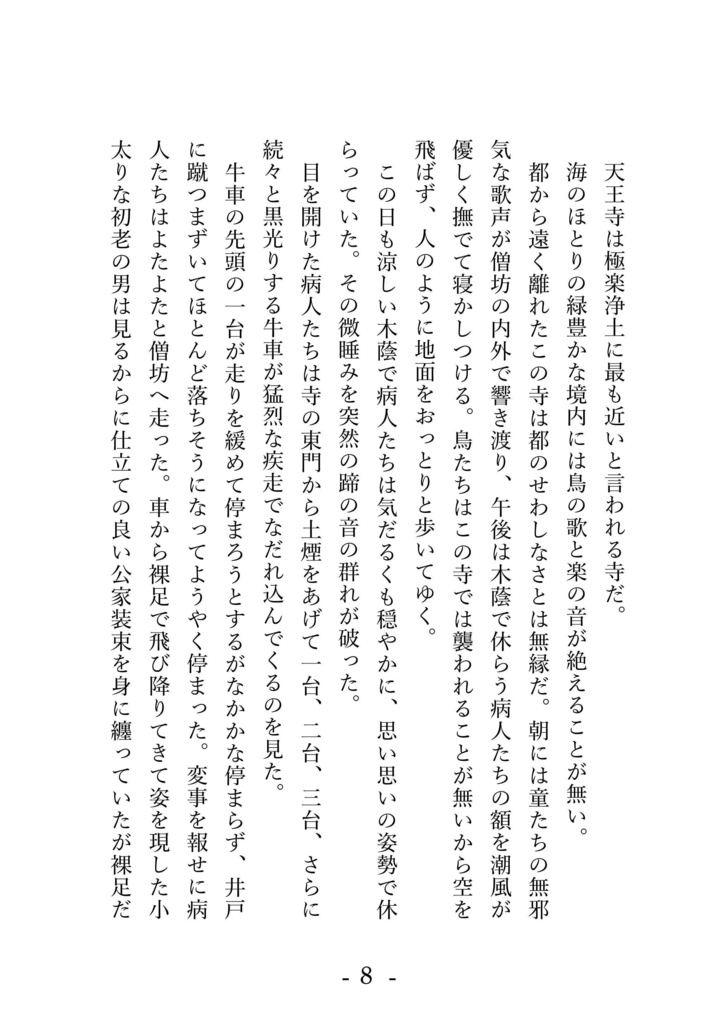 天王寺は極楽浄土に最も近いと言われる寺だ。
海のほとりの緑豊かな境内には鳥の歌と楽の音が絶えることが無い。
都から遠く離れたこの寺は都のせわしなさとは無縁だ。朝には童たちの無邪
気な歌声が僧坊の内外で響き渡り、午後は木蔭で休らう病人たちの額を潮風が
優しく撫でて寝かしつける。鳥たちはこの寺では襲われることが無いから空を
飛ばず、人のように地面をおっとりと歩いてゆく。
この日も涼しい木蔭で病人たちは気だるくも穏やかに、思い思いの姿勢で休
らっていた。その微睡みを突然の蹄の音の群れが破った。
目を開けた病人たちは寺の東門から土煙をあげて一台、二台、三台、さらに
続々と黒光りする牛車が猛烈な疾走でなだれ込んでくるのを見た。
牛車の先頭の一台が走りを緩めて停まろうとするがなかなか停まらず、井戸
に蹴つまずいてほとんど落ちそうになってようやく停まった。変事を報せに病
人たちはよたよたと僧坊へ走った。車から裸足で飛び降りてきて姿を現した小
太りな初老の男は見るからに仕立ての良い公家装束を身に纏っていたが裸足だ
- 8 -